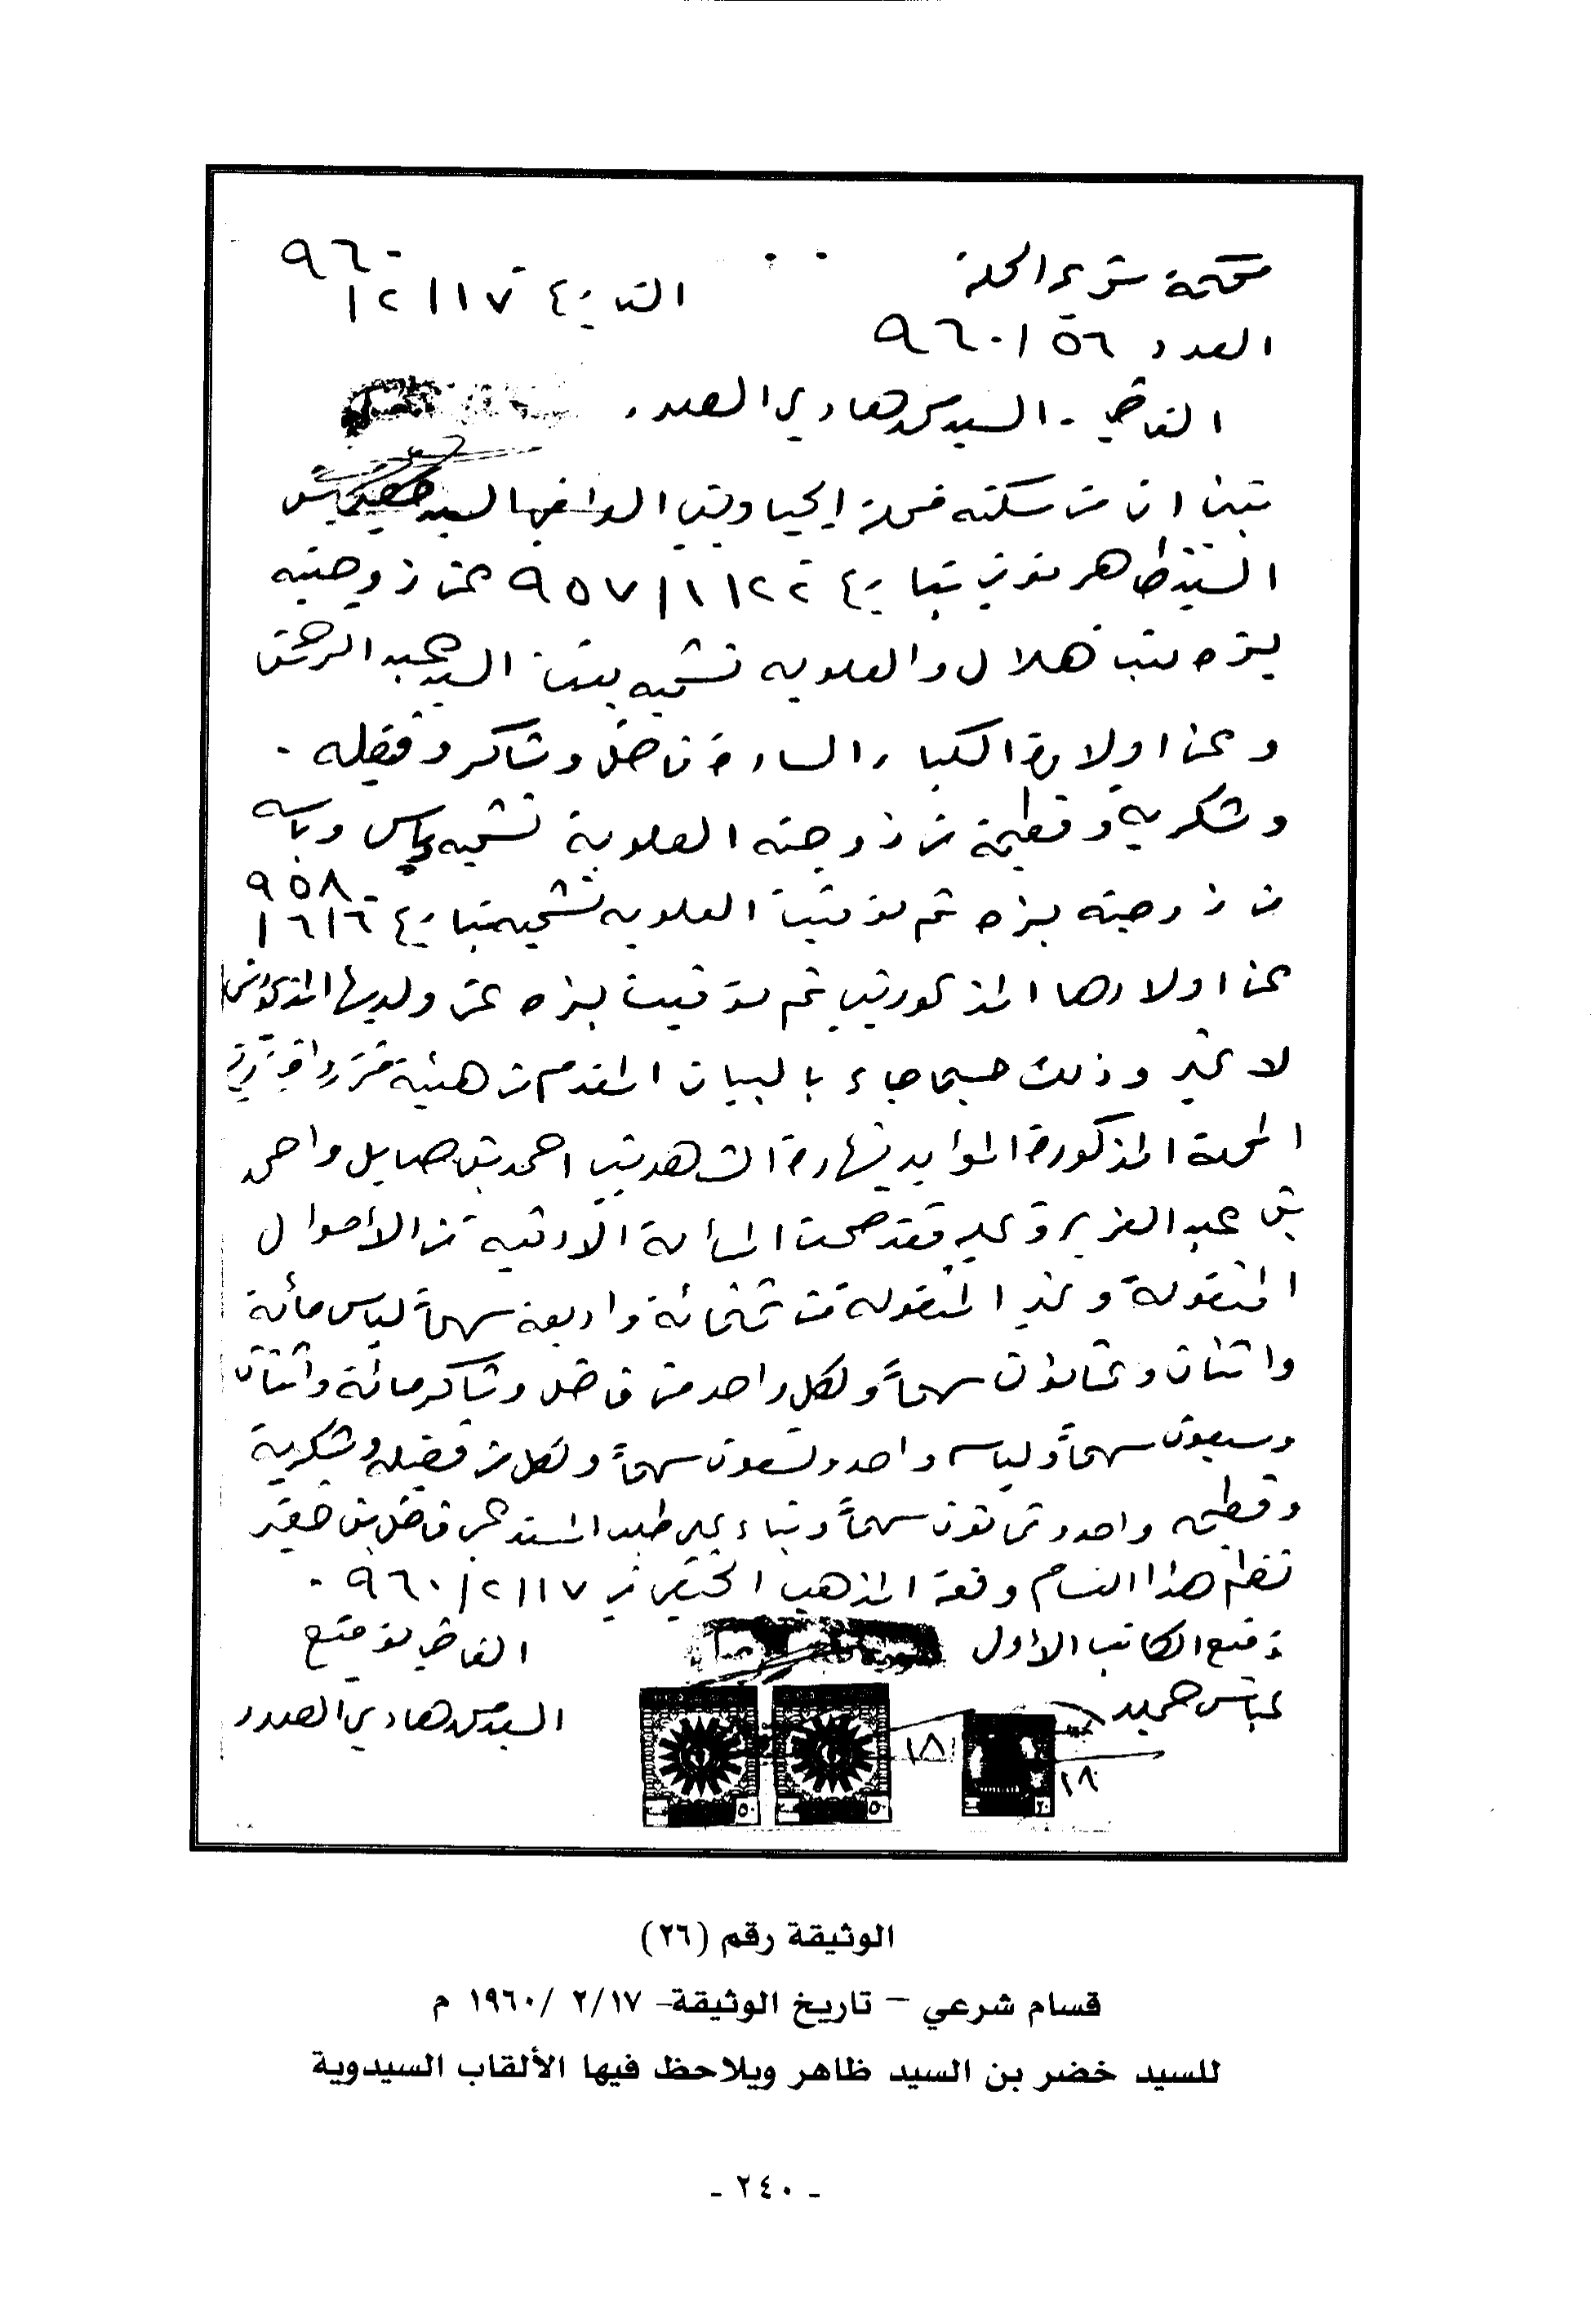 محكمة شرعي الحلة
التاريخ ١٧/٢/٩٦٠
العدد ٥٦/٩٦٠
القاضي - السيد محمد هادي الصدر
تبين ان من سكنه محلة السيد خضير بن
السيد ظاهر توفي بتاريخ ٢٢/١/٩٥٧ عن زوجتيه
بزه بنت هلال والعلويه نشميه بنت السيد عبد الرحمن
وعن اولاده الكبار الساده فاضل وشاكر وفضيله -
وشكريه وفطيمة من زوجته العلوية نشميه وياس وباسه
من زوجته بزه ثم توفيت العلويه نشميه بتاريخ ٦/٦/٩٥٨
عن اولادها المذكورين ثم توفيت بزه عن ولديها المذكورين
لا غير وذلك حسبما جاء بالبيان المقدم من هيئة
المحلة المذكورة المؤايد بشهادة الشاهدين احمد بن صايل واحمد
بن عبد العزيز وعليه فقد صحت المسألة الارثيه من الأموال
المنقولة وغير المنقولة من ثمنمائة واربعة سهماً لياس مائة
واثنان وثمانون سهماً ولكل واحد من فاضل وشاكر مائة واثنان
وسبعون سهماً ولباسه واحد وتسعون سهماً ولكل من فضيله وشكرية
وفطيمه واحد وثمانون سهماً وبناء على طلب المستدعي فاضل بن خضير
نظم هذا القسام وفقه المذهب الجعفري في ١٧/٢/٩٦٠ -
توقيع الكاتب الأول
القاضي توقيع
عباس حميد
السيد محمد هادي الصدر
٥٠
٥٠
٢٠
الوثيقة رقم (٢٦)
قسام شرعي – تاريخ الوثيقة- ٢/١٧ /١٩٦٠ م
للسيد خضر بن السيد ظاهر ويلاحظ فيها الألقاب السيدوية
- ٢٤٠ -